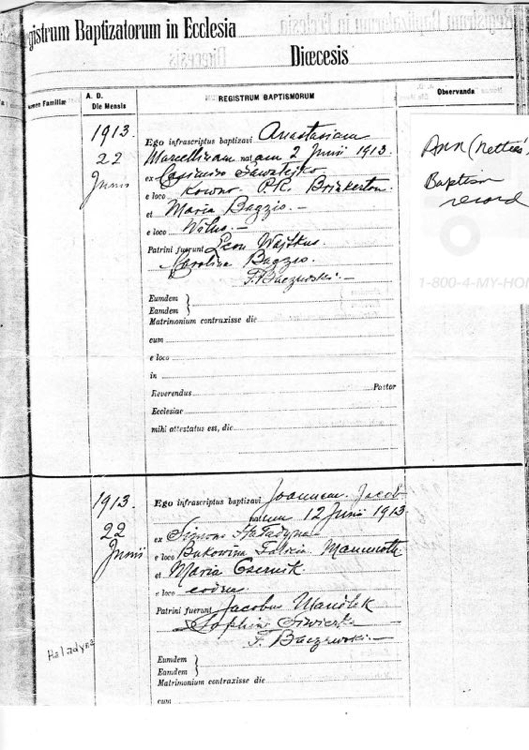 Registrum Baptizatorum in Ecclesia
Diœcesis
nomen Familiae
A. D.
Die Mensis
REGISTRUM BAPTISMORUM
Observanda
1913.
22
Junii
Ego infrascriptus baptizavi Anastasiam
Marcellinam natam 2 Junii 1913.
ex Casimiro
e loco Kowno P.K. Brinkerton.
et Maria Bagzis.—
e loco Wilno.—
Patrini fuerunt Leon Wajtkus.
Karolina Bagzis.
F. Baczewski.—
Eumdem
Eamdem
Matrimonium contraxisse die
cum
e loco
in
Reverendus Pastor
Ecclesiae
mihi attestatus est, die
Ann (Nettie)
Baptism
record
1-800-4-MY-HO
1913.
22
Junii
Ego infrascriptus baptizavi Joannem Jacob
natum 12 Junii 1913
ex Simone
e loco Bukowina Galicia Mammoth
et Maria Csernik
e loco eodem
Patrini fuerunt Jacobus
Sophia
F. Baczewski.—
Haladyna
Eumdem
Eamdem
Matrimonium contraxisse die
cum